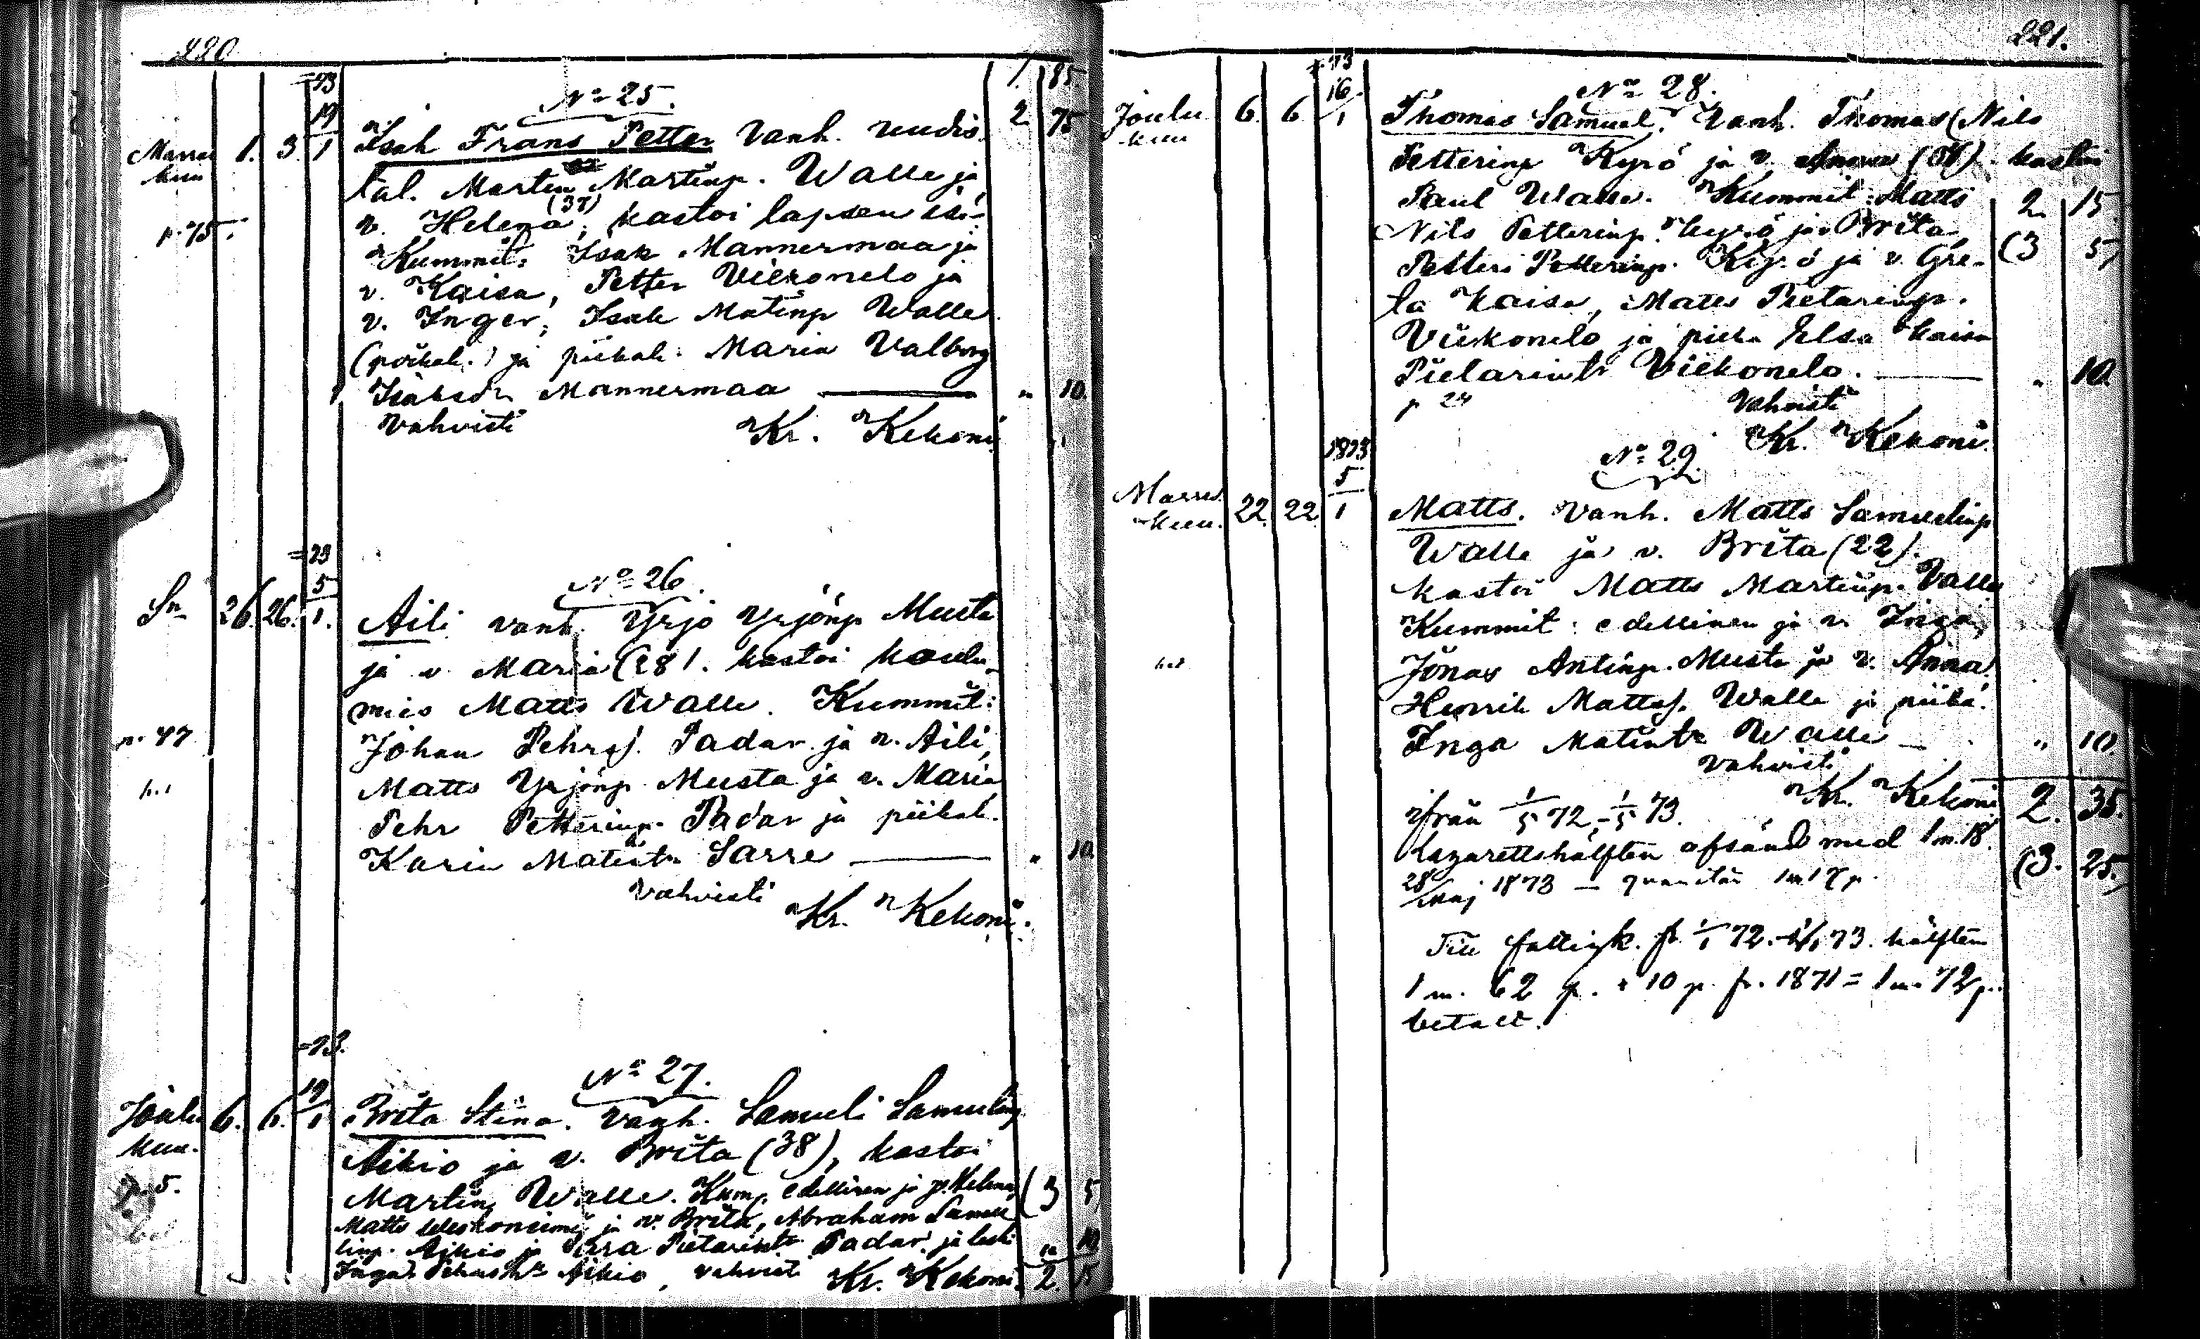 220
=73
1. 85.
No 25.
19/1
2 75
Marras kuu 1. 3. Isak Frans Petter Vanh. uudis
tal. Marten Martinp. Walle ja
v. Helena (37), kastoi lapsen isä.
p. 75.
Kummit: Isak Mannermaa ja
v. Kaisa, Petter Viekonelo ja
v. Inger, Isak Matinp Walle
(poikal.) ja piikal: Maria Valborg
Isakintr Mannermaa — " 10.
Vahvisti Kr. Kekoni
=73
5/1.
No 26.
26. 26. Aili vanh. Yrjö Yrjönp Musta
ja v Maria (28). kastoi koulu
mies Matts Walle. Kummit:
p. 47
Johan Pehrs. Padar ja v. Aili,
Matts Yrjönp Musta ja v. Maria
Pehr Petterinp. Padar ja piikal.
Karin Matintr Sarre — " 10
Vahvisti
Kr. Kekoni.
=73.
No 27.
19/1
Joulu kuu. 6. 6. Brita Stina. Vanh. Samuli Samulinp
Aikio ja v. Brita (38), kastoi
p. 5.
Martin Walle. Kump. edellinen ja v. Helena, (3 5)
Matts ja v. Brita, Abraham Samu
linp. Aikio ja Pietarintr Padar ja leski
Inga Aikio, vahvisti Kr. Kekoni. 2. 15
221.
=73
16/1
No 28.
Joulu kuu 6. 6. Thomas Samuel. Vanh. Thomas (Nils
Petterinp Kyrö ja v. Anna kastoi
Paul Walle. Kummit: Matts 2. 15.
Nils Petterinp. Kyrö ja Brita
Petteri Petterinp. Kyrö ja v. Gre- (3 5)
ta Kaisa, Matts Pietarinp.
Viekonelo ja piika Elsa Kaisa
Pietarintr Viekonelo. — " 10.
p 24
Vahvisti
Kr. Kekoni.
1873
5/1
No 29.
Marras kuu. 22. 22. Matts. Vanh. Matts Samulinp
Walle ja v. Brita (22).
kastoi Matts Martinp. Valle
Kummit: edellinen ja v. Inga,
Jonas Antinp. Musta ja v. Anna
Henrik Mattss. Walle ja piika
Inga Matintr Walle — " 10
Vahvisti
Kr. Kekoni 2. 35.
ifrån 1/5 72,-1/5 73.
Lazarettshälften afsänd med 1 m. 18. (3. 25.)
28/maj 1873
Till fattigk. hälften
1 m. 62 p. + 10 p. fr. 1871 = 1 m. 72 p.
betalt.